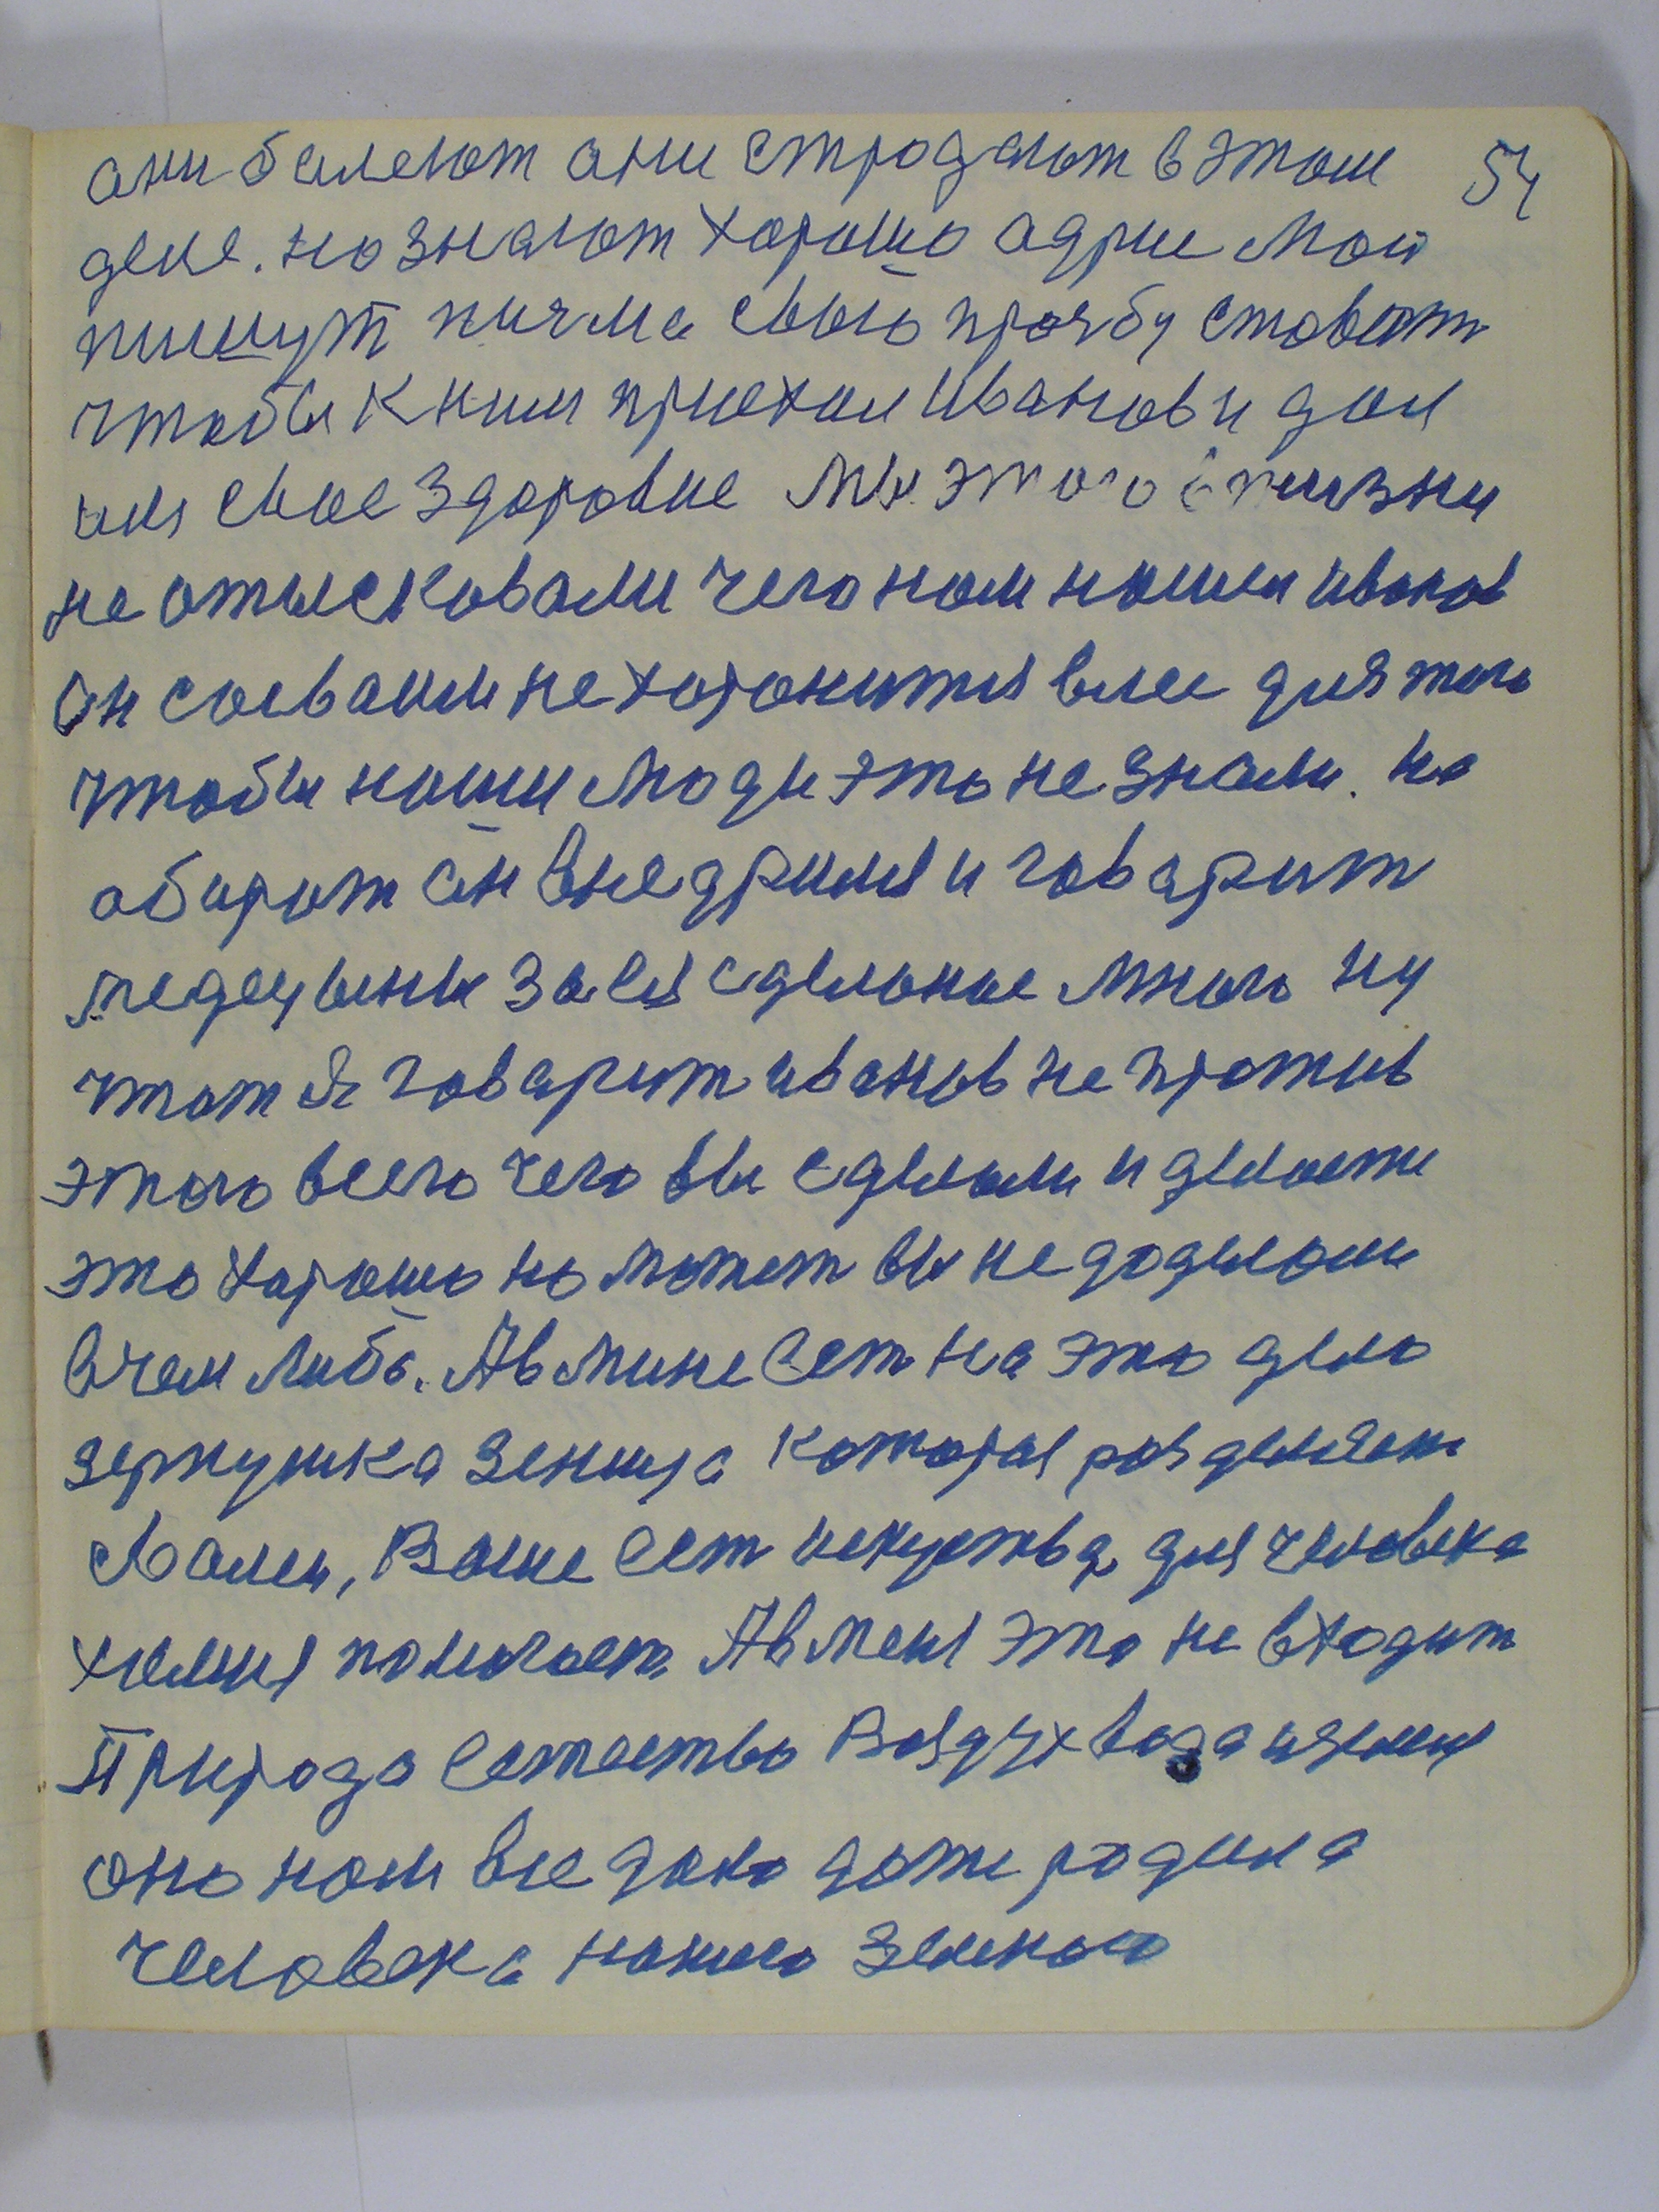 они балеют они стродают в этом 54
деле. но знают хорошо адрис мой
пишут пичма свою прочбу ставют
чтобы к ним приехал Иванов и дал
им свое здоровие мы этого в жизни
не отысковали чего нам нашел иванов
Он с оевами не хоронится влес для того
чтобы наши люди это не знали. На
оборот он внедрился и говарит
медецыны за ея сделоное много ну
чтот я говарит иванов не против
этого всего чего вы сделали и делаети
это хорошо но может вы не доделали
в чем либо. А в мине ест на это дело
зернушка зеница котороя розделяет
с вами, Ваше ест искуства для человека
химия помогает А в меня это не входит
Природа естество Воздух вода и земля
оно нам все дало дажи родила
человека нашего земного